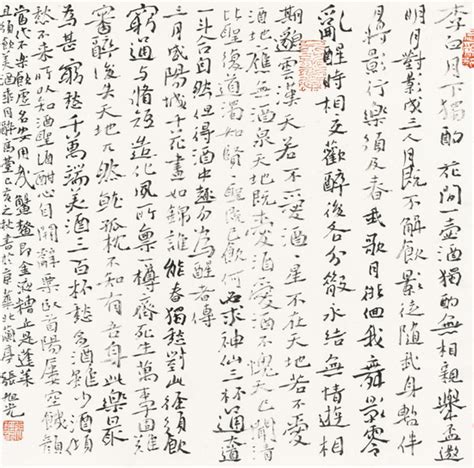 李白月下獨酌 花間一壺酒獨酌無相親舉盃邀
明月對影成三人月既不解飲影徒隨我身暫伴
月將影行樂須及春我歌月徘徊我舞影零
亂醒時相交歡醉後各分散永結無情遊相
期邈雲漢天若不愛酒星不在天地若不愛
酒地應無酒泉天地既愛酒愛酒不愧天已聞清
比聖復道濁如賢賢聖既已飲何必求神仙三杯通大道
一斗合自然但得酒中趣勿為醒者傳
三月咸陽城千花晝如錦誰能春獨愁對此徑須飲
窮通與脩短造化夙所稟一樽齊死生萬事固難
審醉後失天地兀然就孤枕不知有吾身此樂最
為甚窮愁千萬端美酒三百杯愁多酒雖少酒傾
愁不來所以知酒聖酒酣心自開辭粟臥首陽屢空飢顏
當代不樂飲虛名安用哉蟹螯即金液糟丘是蓬萊
且須飲美酒乘月醉高臺己亥之秋書於京華北蘭亭張旭光